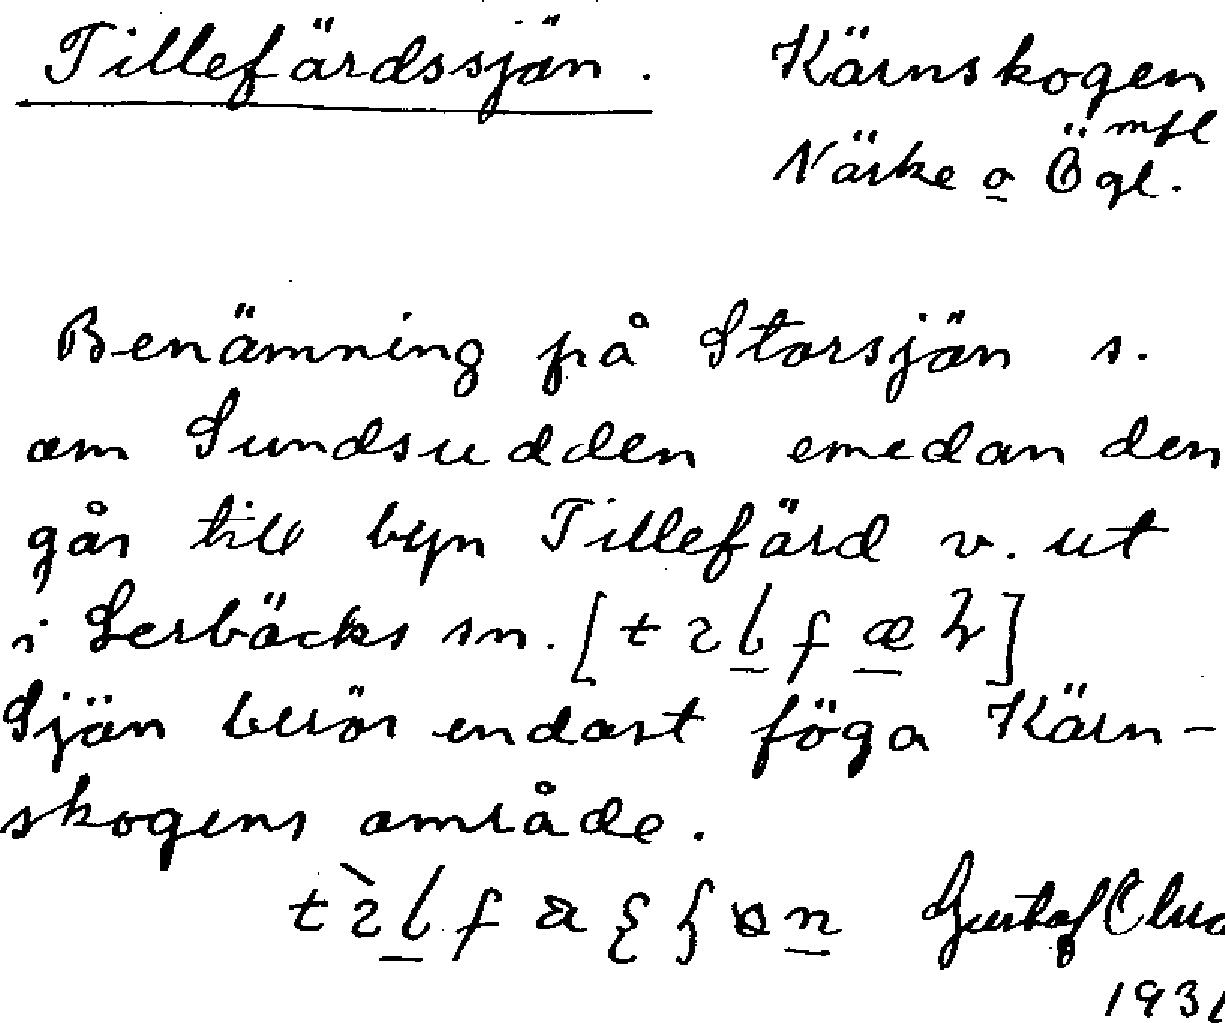 Tillefärdssjön. Kärnskogen
mfl
Närke o Ögl.
Benämning på Storsjön s.
om Sundsudden emedan den
går till byn Tillefärd v. ut
i Lerbäcks sn.
Sjön berör endast föga Kärn-
skogens område.
Gustaf